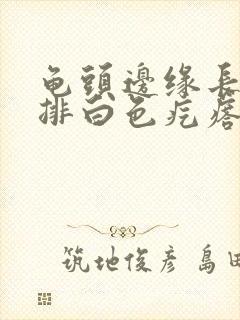 龟頭邊缘長
排白色疙瘩
筑地俊彦 島田